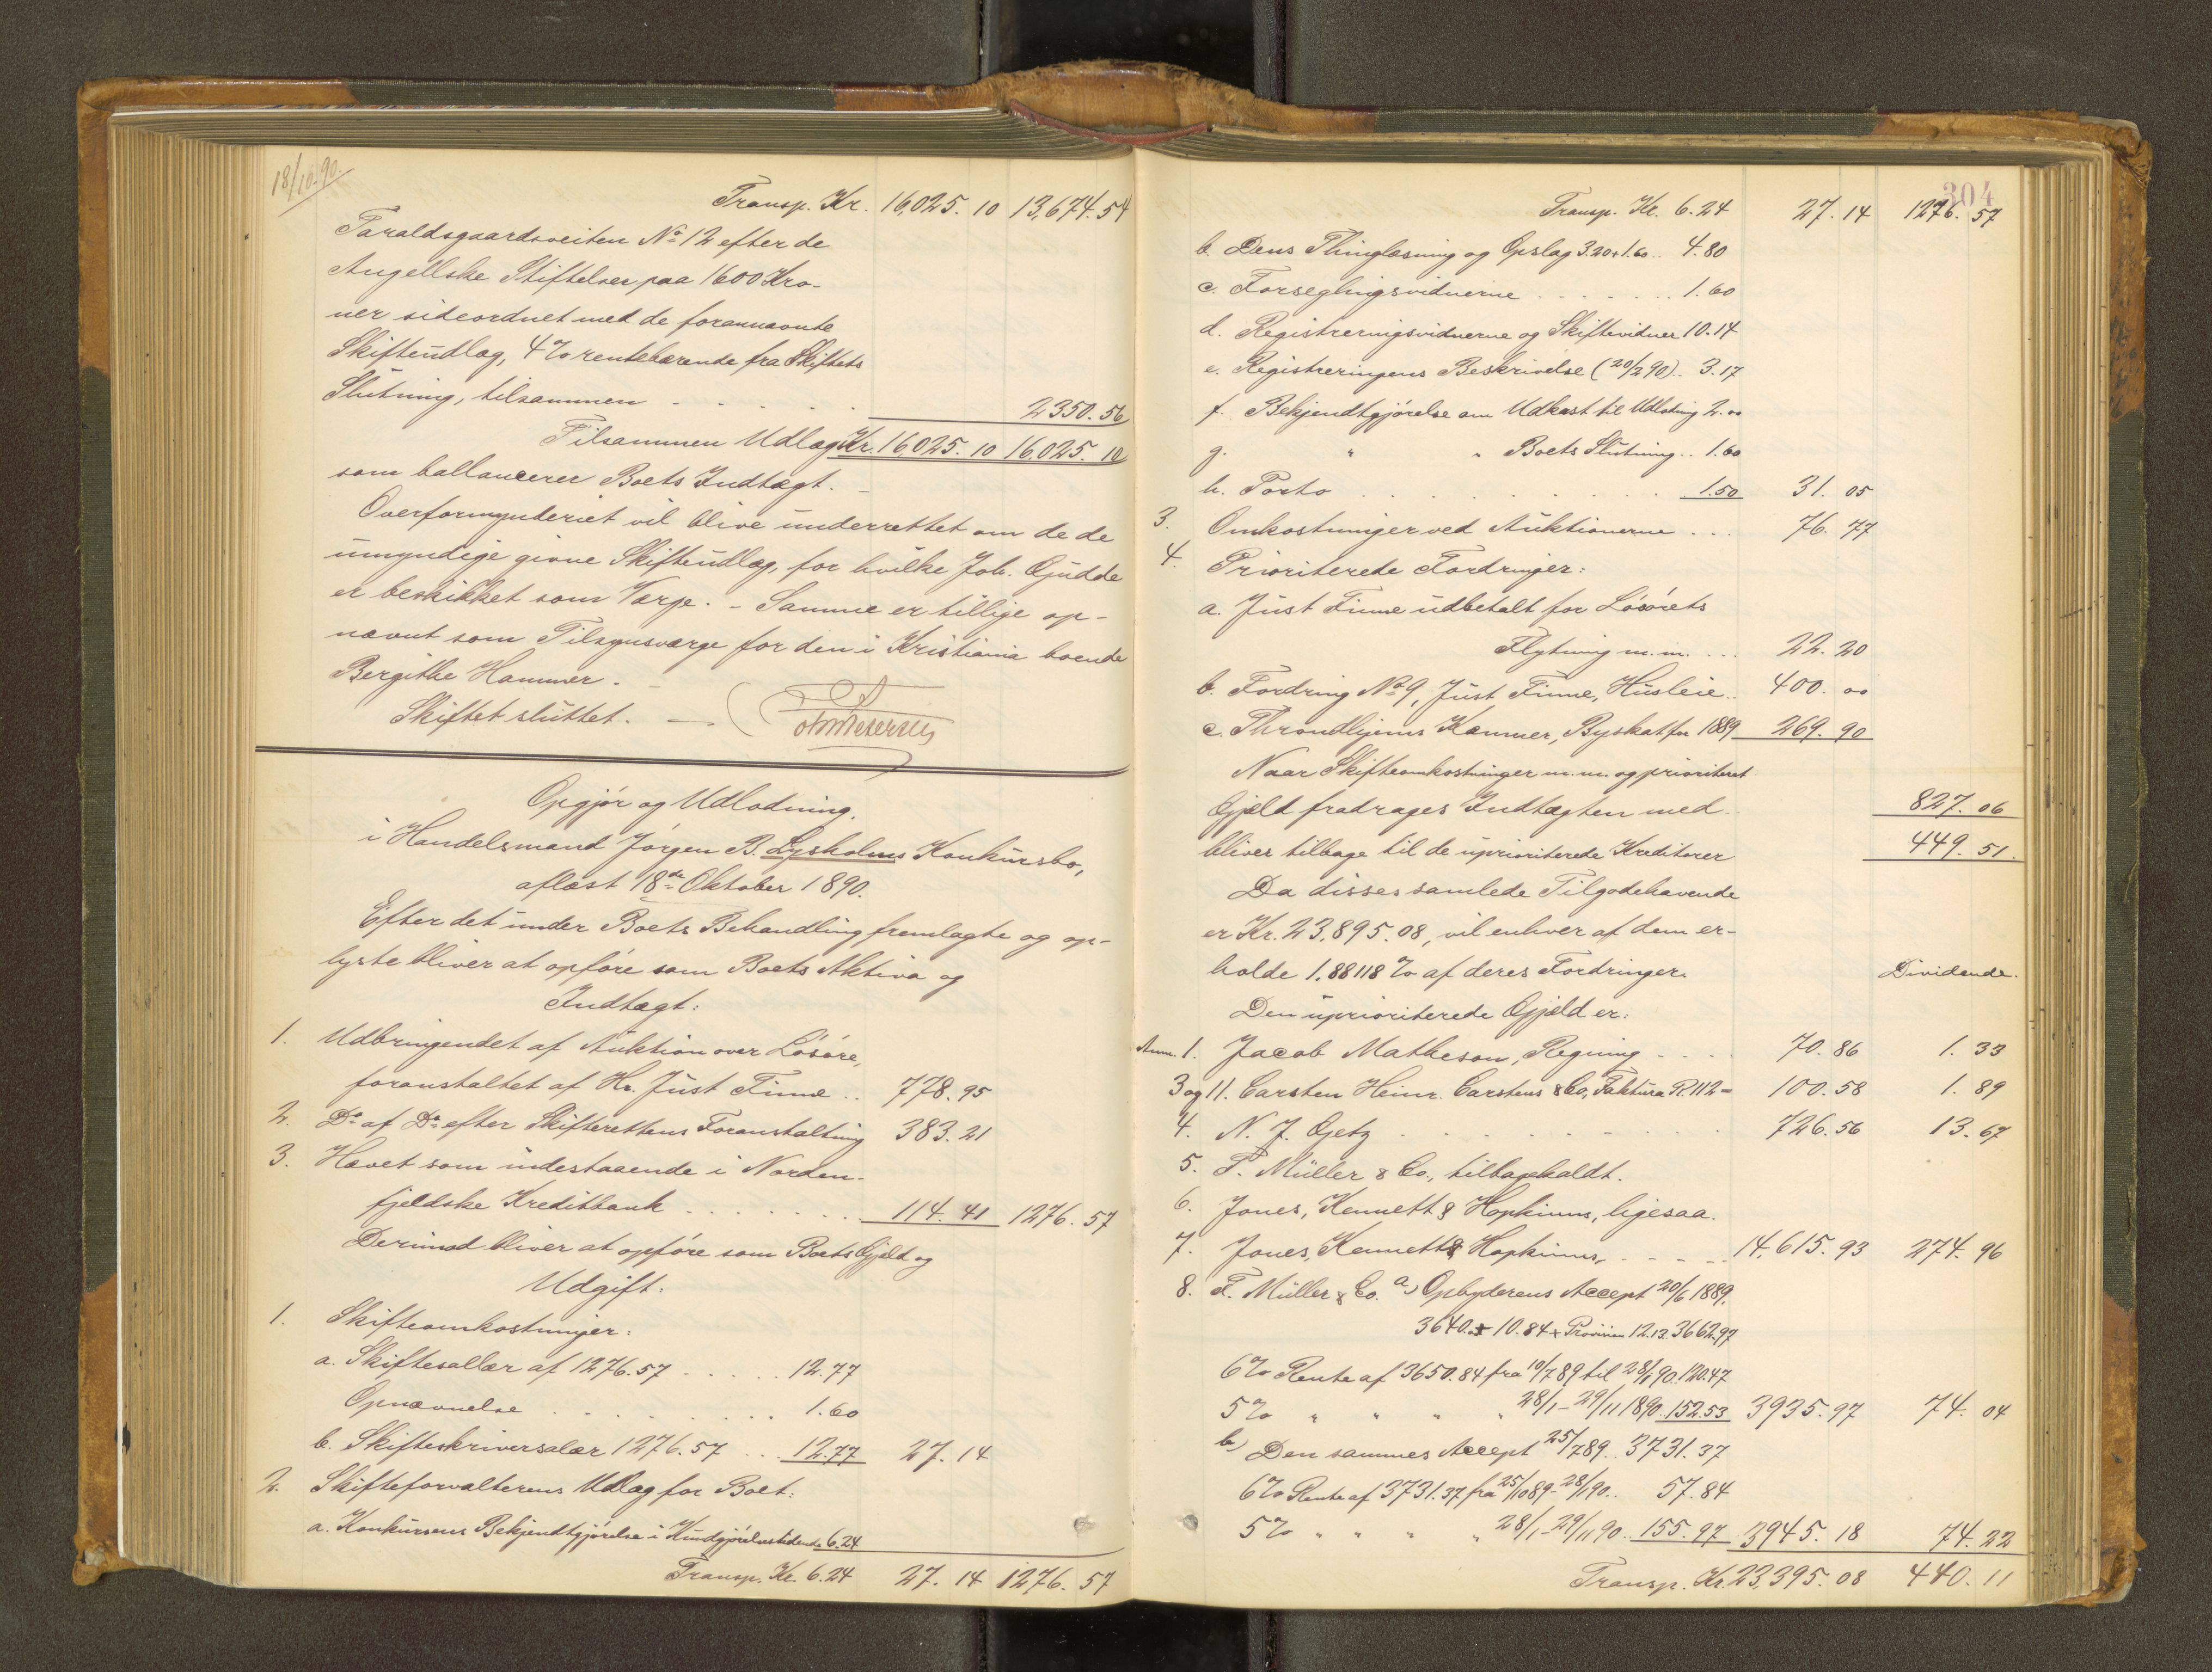 18/10.90.
Transp. Kr. 16,025.10 13,674.54
Taraldsgaardsveiten No 12 efter de
Angellske Stiftelser paa 1600 Kro-
ner sideordnet med de forannævnte
Skifteudlæg, 4 % rentebærende fra Skiftets
Slutning, tilsammen - - - - - 2350.56
Tilsammen Udlæg Kr. 16,025.10 16,025.10
som ballancerer Boets Indtægt. -
Overformynderiet vil blive underrettet om de de
umyndige givne Skifteudlæg, for hvilke Joh. Gjudde
er beskikket som Værge. - Samme er tillige op-
nævnt som Tilsynsværge for den i Kristiania boende
Bergithe Hammer. -
Skiftet sluttet. -
Opgjør og Udlodning.
i Handelsmand Jørgen B. Lysholms Konkursbo,
aflæst 18de Oktober 1890.
Efter det under Boets Behandling fremlagte og op-
lyste bliver at opføre som Boets Aktiva og
Indtægt:
1. Udbringendet af Auktion over Løsøre,
foranstaltet af Hr. Just Finne .. 778.95
2. Do af Do efter Skifterettens Foranstaltning 383.21
3. Hævet som indestaaende i Norden-
fjeldske Kreditbank . . . . . . . 114.41 1276.57
Derimod bliver at opføre som Boets Gjæld og
Udgift:
1. Skifteomkostninger:
a. Skiftesallær af 1276.57 . . . . . 12.77
Opnævnelse . . . . . . . . . 1.60
b. Skifteskriversalær 1276.57 . . . 12.77 27.14
2. Skifteforvalterens Udlæg for Boet:
a. Konkursens Bekjendtgjørelse i Kundgjørelsestidende 6.24
Transp. Kr. 6.24 27.14 1276.57
304
Transp. Kr. 6.24 27.14 1276.57
b. Dens Thinglæsning og Opslag 3.20+1.60 .. 4.80
c. Forseglingsvidnerne . . . . . . . 1.60
d. Registreringsvidnerne og Skiftevidner 10.14
e. Registreringens Beskrivelse (20/2 90) .. 3.17
f. Bekjendtgjørelse om Udkast til Udlodning 2.00
g. " " Boets Slutning .. 1.60
h. Porto . . . . . . . . . 1.50 31.05
3. Omkostninger ved Auktionerne . . . 76.77
4. Prioriterede Fordringer:
a. Just Finne udbetalt for Løsørets
Flytning m.m. . . . 22.20
b. Fordring No 9, Just Finne, Husleie .. 400.00
c. Throndhjems Kæmner, Byskat for 1889 269.90
Naar Skifteomkostninger m.m. og prioriteret
Gjæld fradrages Indtægten med .. 827.06
bliver tilbage til de uprioriterede Kreditorer 449.51.
Da disses samlede Tilgodehavende
er Kr. 23,895.08, vil enhver af dem er-
holde 1.88118 % af deres Fordringer. Dividende.
Den uprioriterede Gjæld er:
Anm. 1. Jacob Matheson, Regning - . . . 70.86 1.33
3 og 11. Carsten Heinr. Carstens & Co, Faktura R. 112= 100.58 1.89
4. N. J. Gjetz . . . . . . . . 726.56 13.67
5. F. Müller & Co., tilbageholdt.
6. Jones, Kennett & Hopkinns, ligesaa.
7. Jones, Kennett & Hopkinns, . . - - .. 14,615.93 274.96
8. F. Müller & Co. a) Opbyderens Accept 20/6 1889.
3640. + 10.84 + Provision 12.13. 3662.97
6 % Rente af 3650.84 fra 10/7 89 til 28/1 90. 120.47
5 % " " " " 28/1 - 29/11 1890. 152.53 3935.97 74.04
b) Den sammes Accept 25/7 89 .. 3731.37
6 % Rente af 3731.37 fra 25/10 89 - 28/1 90 .. 57.84
5 % " " " " 28/1 - 29/11 90 .. 155.97 3945.18 74.22
Transp. Kr. 23,395.08 440.11